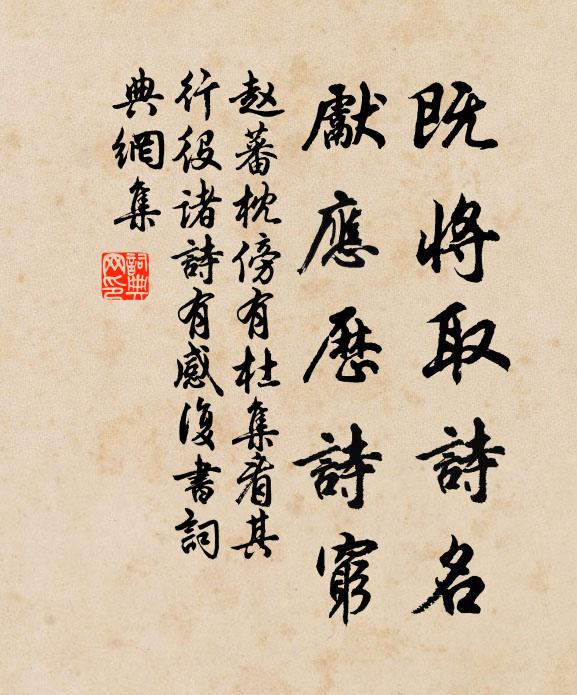 既将取詩名
厭應歷詩窮
赵蕃枕傍有杜集看其
行役诸詩有感復書詞
典網集
詞典網印